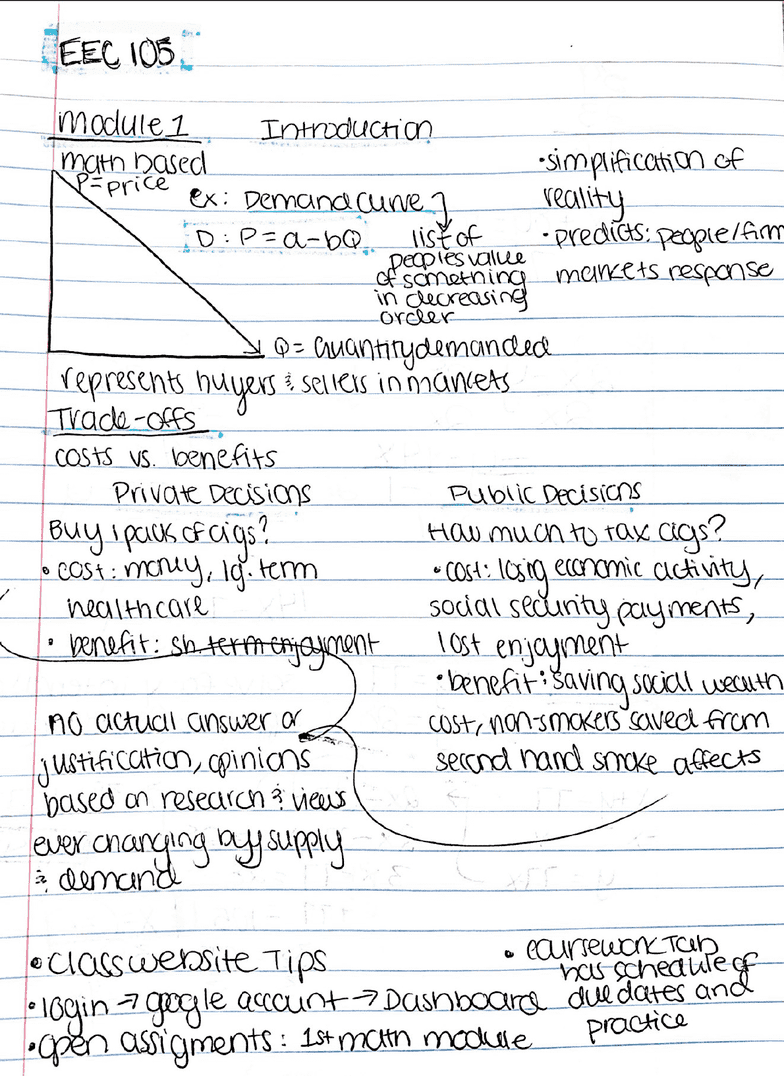 EEC 105
Module 1 Introduction
math based
P=price
ex: Demand Curve
D: P=a-bQ
list of
peoples value
of something
in decreasing
order
•simplification of
reality
•predicts: people/firm
markets response
Q= Quantity demanded
represents buyers & sellers in markets
Trade-offs
costs vs. benefits
Private Decisions
Buy 1 pack of cigs?
• cost: money, lg. term
healthcare
• benefit: sh. term enjoyment
Public Decisions
How much to tax cigs?
•cost: losing economic activity,
social security payments,
lost enjoyment
•benefit: saving social wealth
cost, non-smokers saved from
second hand smoke affects
no actual answer or
justification, opinions
based on research & views
ever changing buy supply
& demand
•Class website Tips
•login → google account → Dashboard
•open assigments: 1st math module
• coursework Tab
has schedule of
due dates and
practice